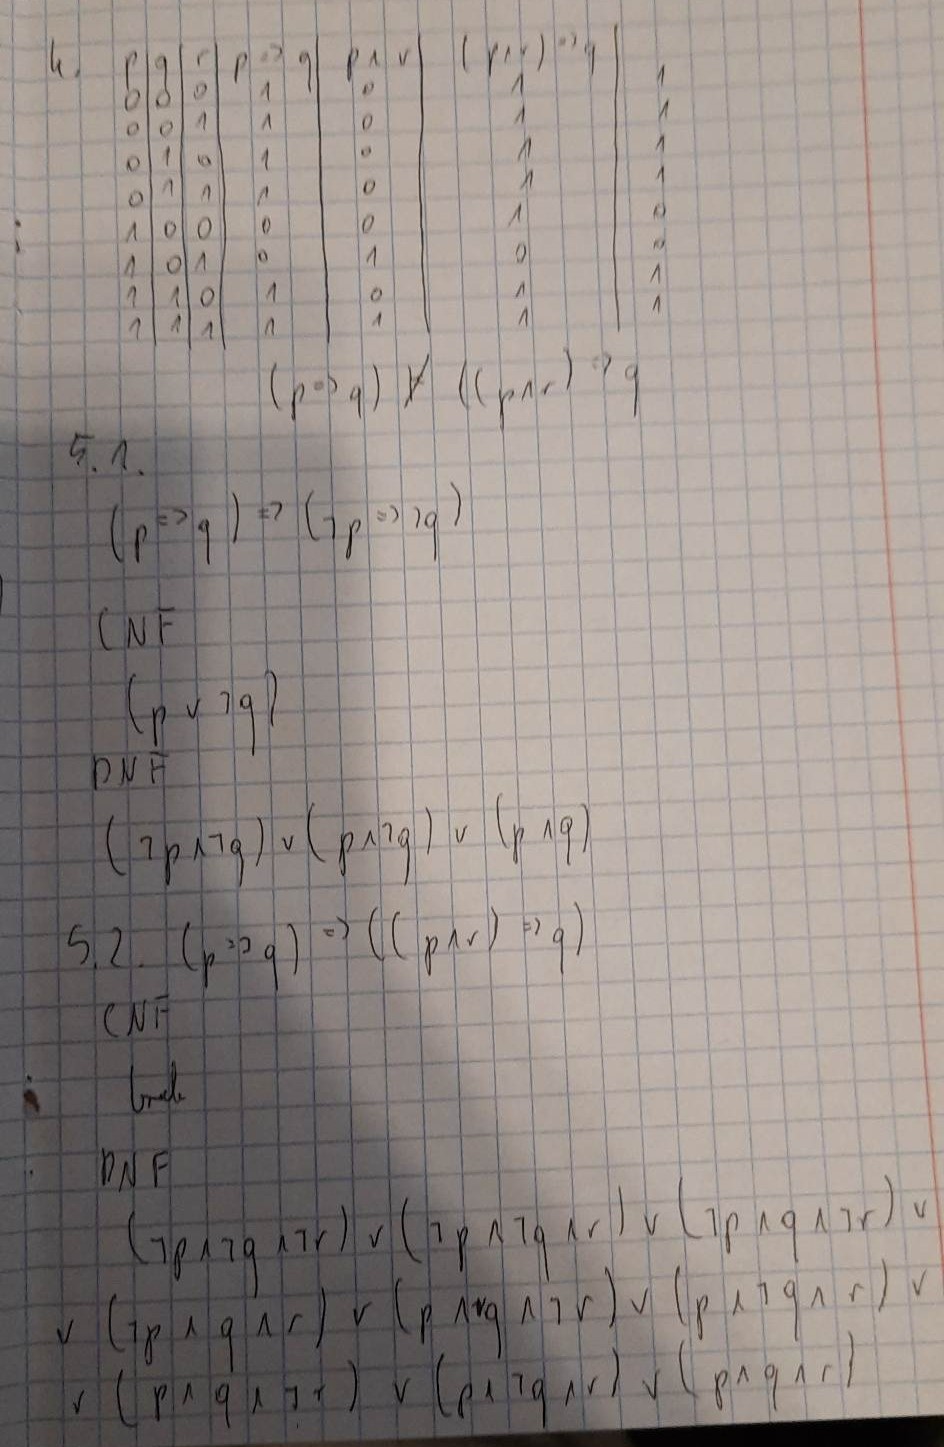 4. p | q | r | p => q | p ∧ r | (p∧r) => q |
0 0 0 1 0 1 1
0 0 1 1 0 1 1
0 1 0 1 0 1 1
0 1 1 1 0 1 1
1 0 0 0 0 1 0
1 0 1 0 1 0 0
1 1 0 1 0 1 1
1 1 1 1 1 1 1
(p => q) ((p∧r) => q
5.1.
(p => q) => (¬p => ¬q)
CNF
(p ∨ ¬q)
DNF
(¬p∧¬q) ∨ (p∧¬q) ∨ (p∧q)
5.2. (p => q) => ((p∧r) => q)
CNF
brak
DNF
(¬p∧¬q∧¬r) ∨ (¬p∧¬q∧r) ∨ (¬p∧q∧¬r) ∨
∨ (¬p∧q∧r) ∨ (p∧¬q∧¬r) ∨ (p∧¬q∧r) ∨
∨ (p∧q∧¬r) ∨ (p∧¬q∧r) ∨ (p∧q∧r)